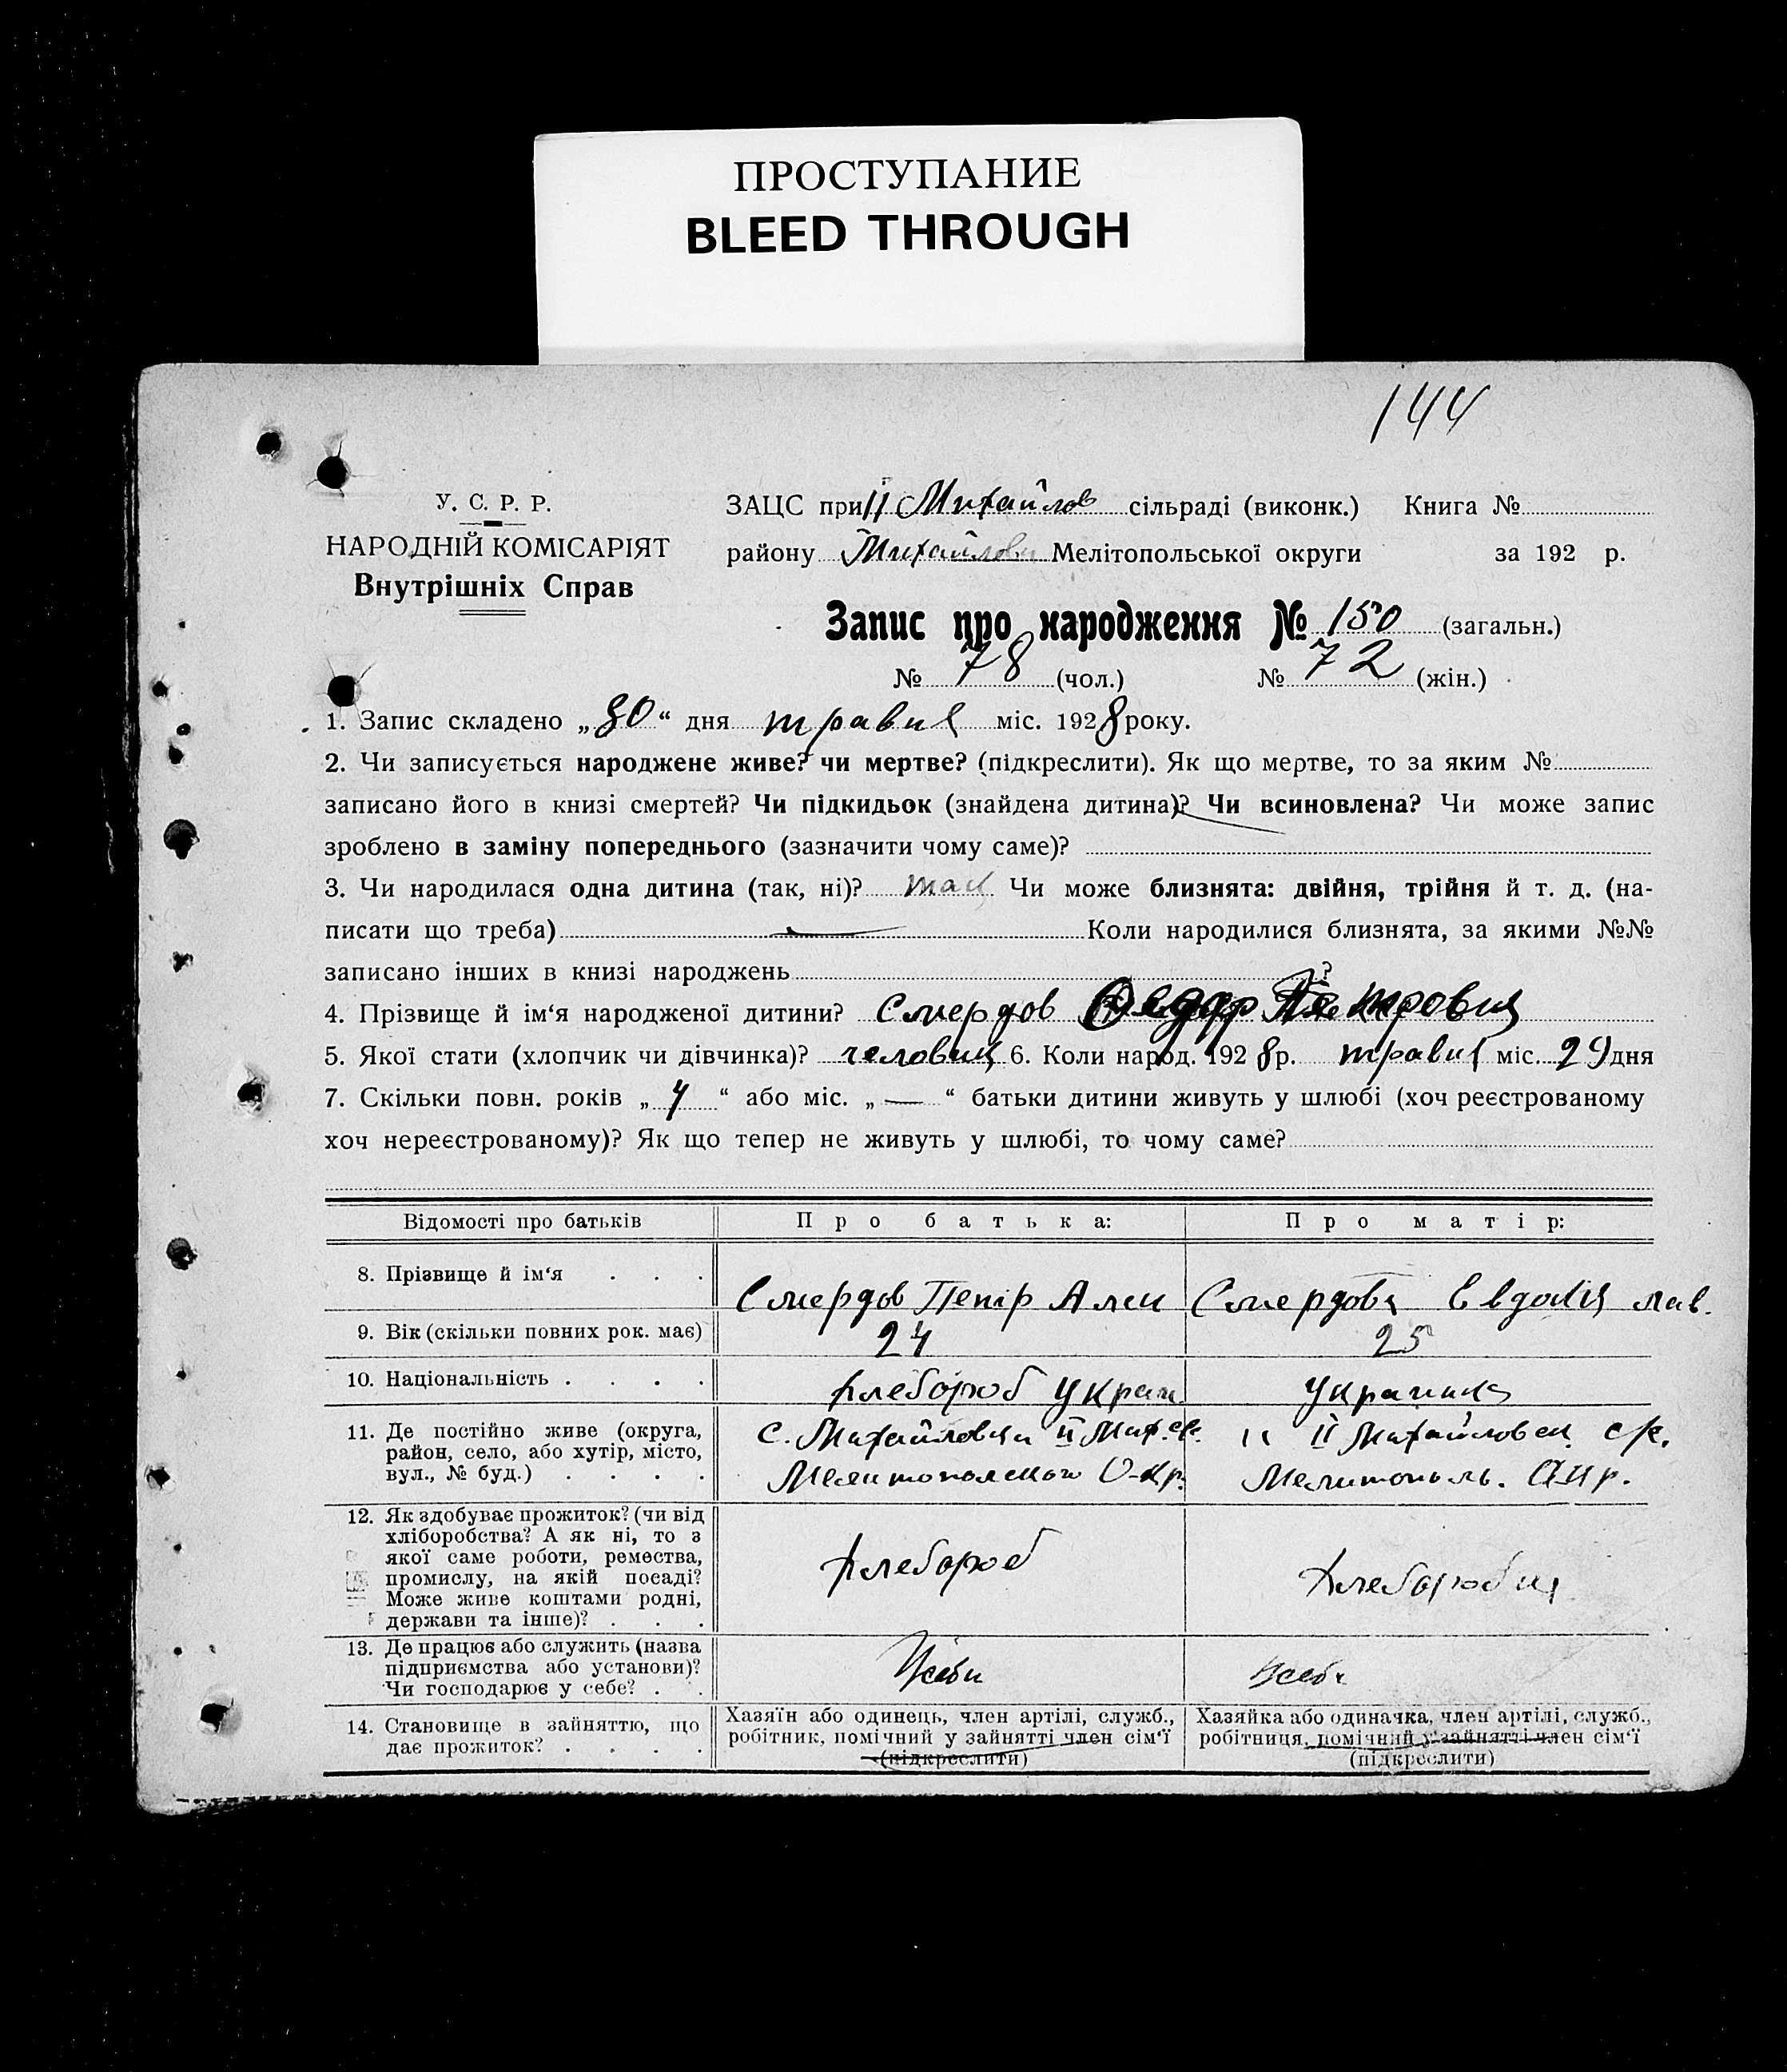 ПРОСТУПАНИЕ
BLEED THROUGH
144
У. С. Р. Р.
НАРОДНІЙ КОМІСАРІЯТ
Внутрішніх Справ
ЗАЦС при II Михайлов сільраді (виконк.) Книга №
району Михайлов Мелітопольської округи за 192 р.
Запис про народження № 150 (загальн.)
№ 78 (чол.) № 72 (жін.)
1. Запис складено „30“ дня травня міс. 1928 року.
2. Чи записується народжене живе? чи мертве? (підкреслити). Як що мертве, то за яким №
записано його в книзі смертей? Чи підкидьок (знайдена дитина)? Чи всиновлена? Чи може запис
зроблено в заміну попереднього (зазначити чому саме)?
3. Чи народилася одна дитина (так, ні)? так Чи може близнята: двійня, трійня й т. д. (на-
писати що треба) — Коли народилися близнята, за якими №№
записано інших в книзі народжень ?
4. Прізвище й ім‘я народженої дитини? Смердов Федор Петрович
5. Якої стати (хлопчик чи дівчинка)? человик 6. Коли народ. 1928 р. травня міс. 29 дня
7. Скільки повн. років „4“ або міс. „—“ батьки дитини живуть у шлюбі (хоч реєстрованому
хоч нереєстрованому)? Як що тепер не живуть у шлюбі, то чому саме?
Відомості про батьків Про батька: Про матір:
8. Прізвище й ім‘я . . . Смердов Петір Смердова Евдокія
9. Вік (скільки повних рок. має) 24 25
10. Національність . . . . хлебороб украи Украинка
11. Де постійно живе (округа, район, село, або хутір, місто, вул., № буд.) . . . .
с. Михайловки II Мих.
Мелитопольского О-кр.
II Михайловск. с/р.
Мелитополь. Окр.
12. Як здобуває прожиток? (чи від хліборобства? А як ні, то з якої саме роботи, ремества, промислу, на якій посаді? Може живе коштами родні, держави та інше)? . . .
хлебороб
хлеборобка
13. Де працює або служить (назва підприємства або установи)? Чи господарює у себе? . .
Усеби
14. Становище в зайняттю, що дає прожиток? . . . .
Хазяїн або одинець, член артілі, служб., робітник, помічний у зайнятті член сім‘ї (підкреслити)
Хазяйка або одиначка, член артілі, служб., робітниця, помічний у зайнятті член сім‘ї (підкреслити)